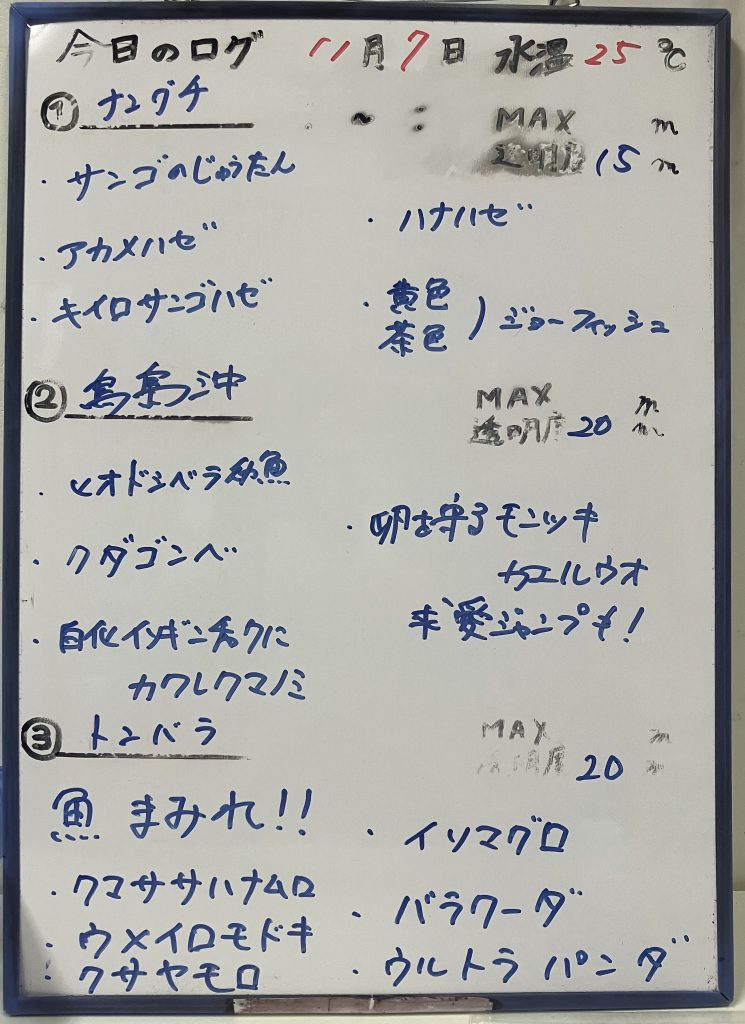 今日のログ 11月7日 水温 25 ℃
① ナングチ ~ : MAX m
透明度 15 m
・サンゴのじゅうたん
・アカメハゼ
・キイロサンゴハゼ
・ハナハゼ
・黄色
茶色 ) ジョーフィッシュ
② 鳥島沖 MAX m
透明度 20 m
・ヒオドシベラ幼魚
・クダゴンベ
・白化イソギンチャクに
カワレクマノミ
・卵を守るモンツキ
カエルウオ
求愛ジャンプも!
③ トンバラ MAX m
透明度 20 m
魚まみれ!!
・クマササハナムロ
・ウメイロモドキ
・クサヤモロ
・イソマグロ
・バラクーダ
・ウルトラパンダ